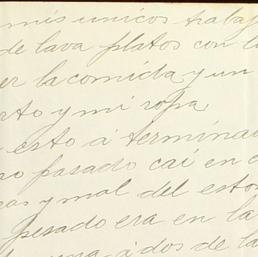 mis unicos trabaj
de lava platos con la
er la comida y un
rto y mi ropa
esto á terminad
ro pasado caí en c
as y mal del esto
pesado era en la
una á dos de la